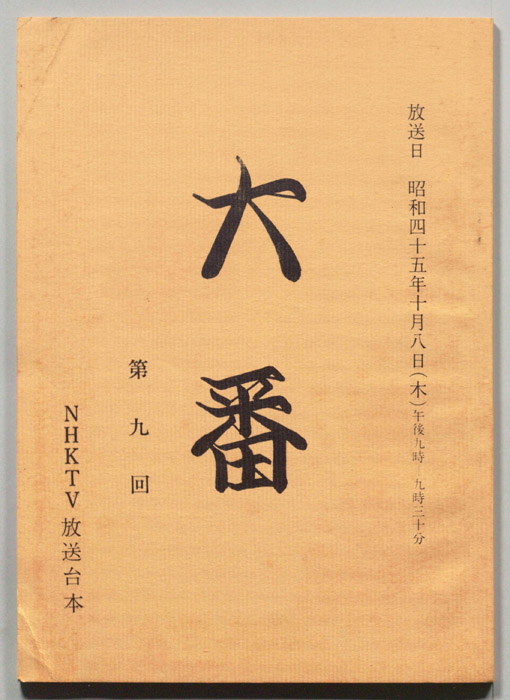 放送日　昭和四十五年十月八日(木)午後九時　九時三十分
大番
第九回
NHKTV 放送台本